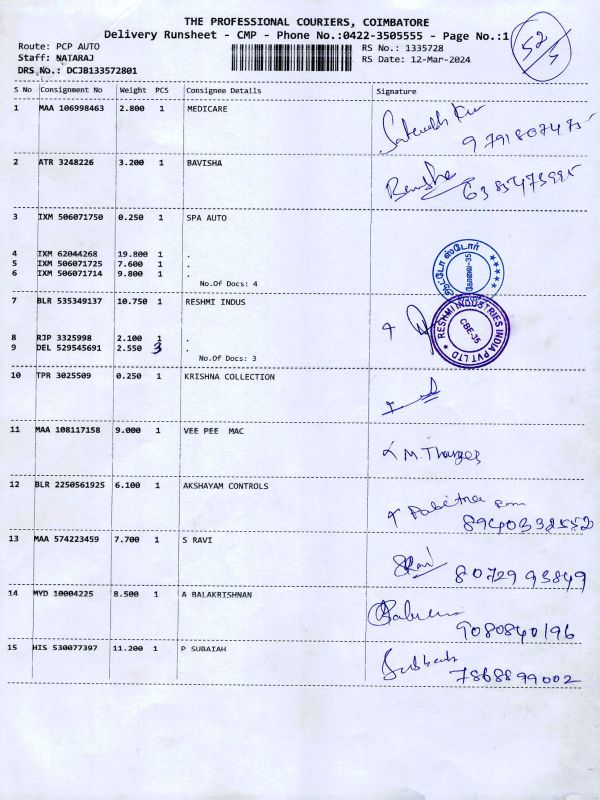 THE PROFESSIONAL COURIERS, COIMBATORE
Delivery Runsheet - CMP - Phone No.:0422-3505555 - Page No.:1
52/5
Route: PCP AUTO RS No.: 1335728
Staff: NATARAJ RS Date: 12-Mar-2024
DRS No.: DCJB133572801
S No Consignment No Weight PCS Consignee Details Signature
1 MAA 106998463 2.800 1 MEDICARE
9791807475
2 ATR 3248226 3.200 1 BAVISHA
Bavisha 6385473995
3 IXM 506071750 0.250 1 SPA AUTO
4 IXM 62044268 19.800 1 .
5 IXM 506071725 7.600 1 .
6 IXM 506071714 9.800 1 .
No.Of Docs: 4
ஆட்டோ ஸ்டோர்
கோவை-35
7 BLR 535349137 10.750 1 RESHMI INDUS
RESHMI INDUSTRIES INDIA PVT LTD
CBE-35
8 RJP 3325998 2.100 1 .
9 DEL 529545691 2.550 3 .
No.Of Docs: 3
10 TPR 3025509 0.250 1 KRISHNA COLLECTION
11 MAA 108117158 9.000 1 VEE PEE MAC
M. Thanges
12 BLR 2250561925 6.100 1 AKSHAYAM CONTROLS
8940332552
13 MAA 574223459 7.700 1 S RAVI
SRavi 8072993849
14 MYD 10004225 8.500 1 A BALAKRISHNAN
9080840196
15 HIS 530077397 11.200 1 P SUBAIAH
7868899002